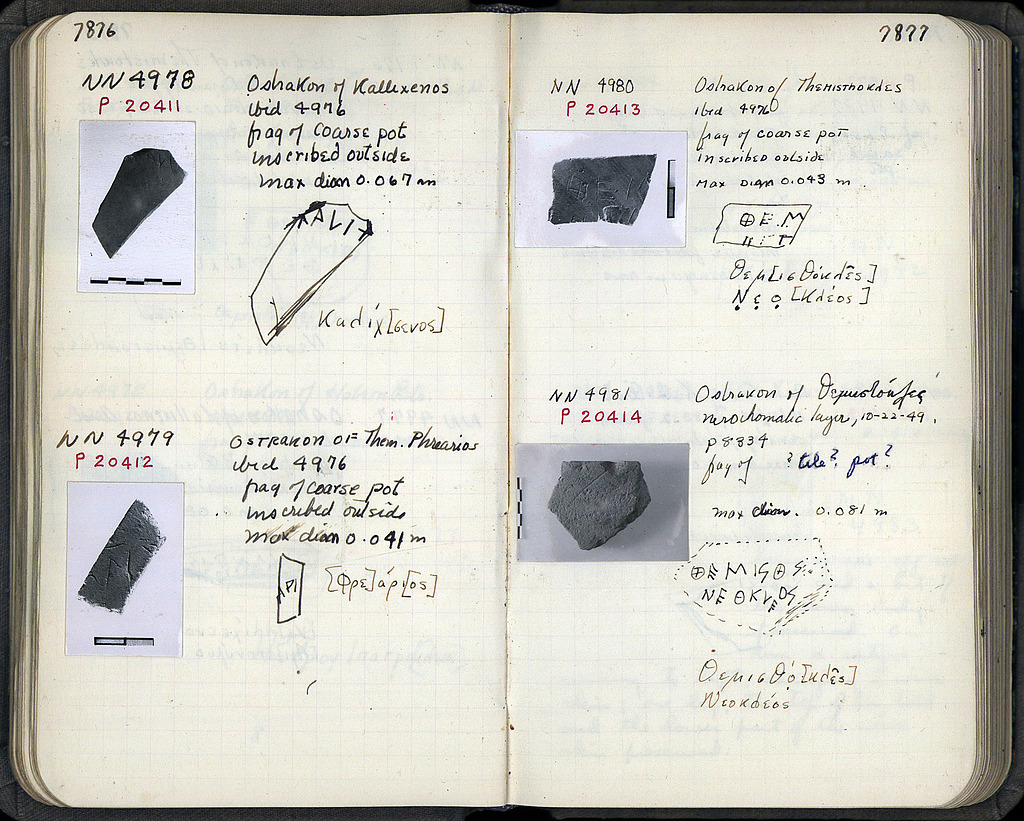 7876
NN 4978
P 20411
Ostrakon of Kallixenos
ibid 4976
frag of coarse pot
inscribed outside
max diam 0.067 m
ΑLΙ+
Καλίχ[σενος]
NN 4979
P 20412
OSTRAKON OF Them. Phrearios
ibid 4976
frag of coarse pot
inscribed outside
max diam 0.041 m
ΑΡΙ
[Φρε]άρι[ος]
7877
NN 4980
P 20413
Ostrakon of Themisthokles
ibid 4976
frag of coarse pot
inscribed outside
max diam 0.043 m
⊕ΕΜ
Θεμ[ισθοκλês]
Νεο[κλέος]
NN 4981
P 20414
Ostrakon of
layer, 10-22-49.
p 8334
frag of ? tile? pot?
max diam. 0.081 m
⊕ΕΜΙSΘ
ΝΕΟΚLΕΟS
Θεμισθο[κλês]
Νεοκλέος